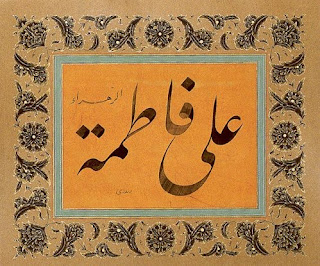 علی فاطمة
الزهراء